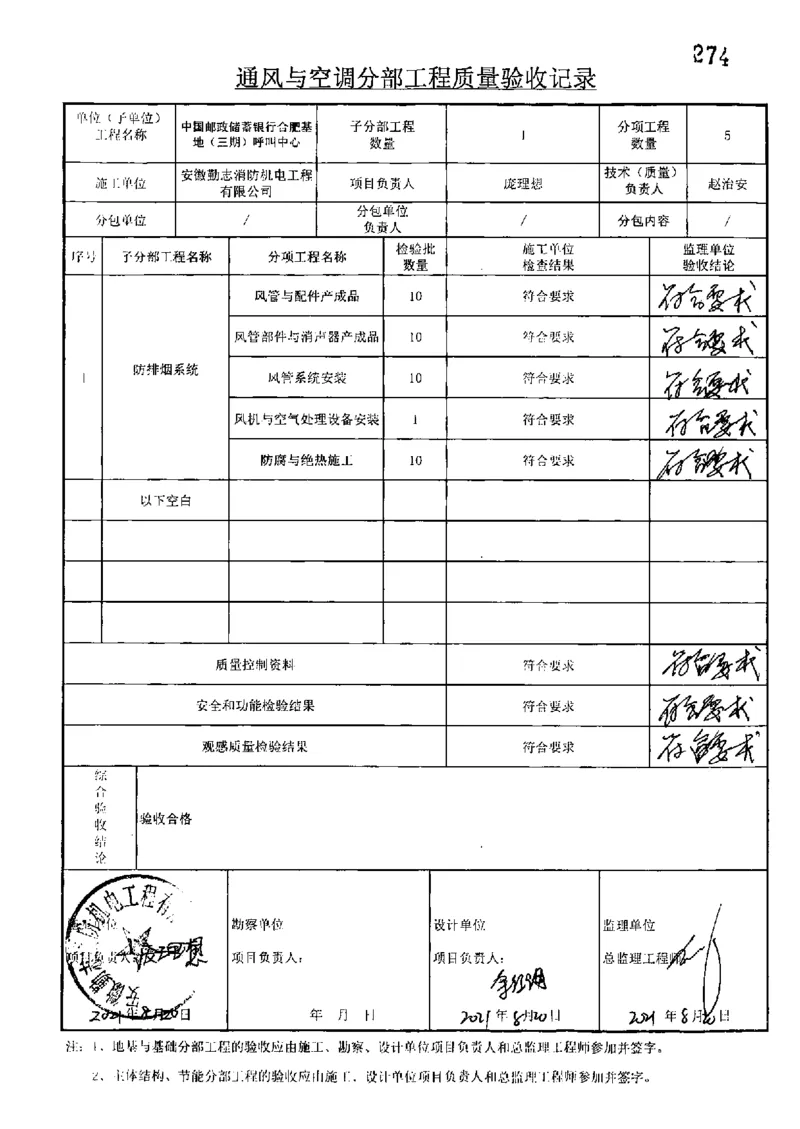 274
通风与空调分部工程质量验收记录
单位（子单位）
工程名称
中国邮政储蓄银行合肥基
地（三期）呼叫中心
子分部工程
数量
1
分项工程
数量
5
施工单位
安徽勤志消防机电工程
有限公司
项目负责人
庞理想
技术（质量）
负责人
赵治安
分包单位
/
分包单位
负责人
/
分包内容
/
序号
子分部工程名称
分项工程名称
检验批
数量
施工单位
检查结果
监理单位
验收结论
1
防排烟系统
风管与配件产成品
10
符合要求
符合要求
风管部件与消声器产成品
10
符合要求
符合要求
风管系统安装
10
符合要求
符合要求
风机与空气处理设备安装
1
符合要求
符合要求
防腐与绝热施工
10
符合要求
符合要求
以下空白
质量控制资料
符合要求
符合要求
安全和功能检验结果
符合要求
符合要求
观感质量检验结果
符合要求
符合要求
综
合
验
收
结
论
验收合格
项目负责人：庞理想
2021年8月20日
勘察单位
项目负责人：
年 月 日
设计单位
项目负责人：
2021年8月20日
监理单位
总监理工程师
2021年8月20日
注：1、地基与基础分部工程的验收应由施工、勘察、设计单位项目负责人和总监理工程师参加并签字。
2、主体结构、节能分部工程的验收应由施工、设计单位项目负责人和总监理工程师参加并签字。